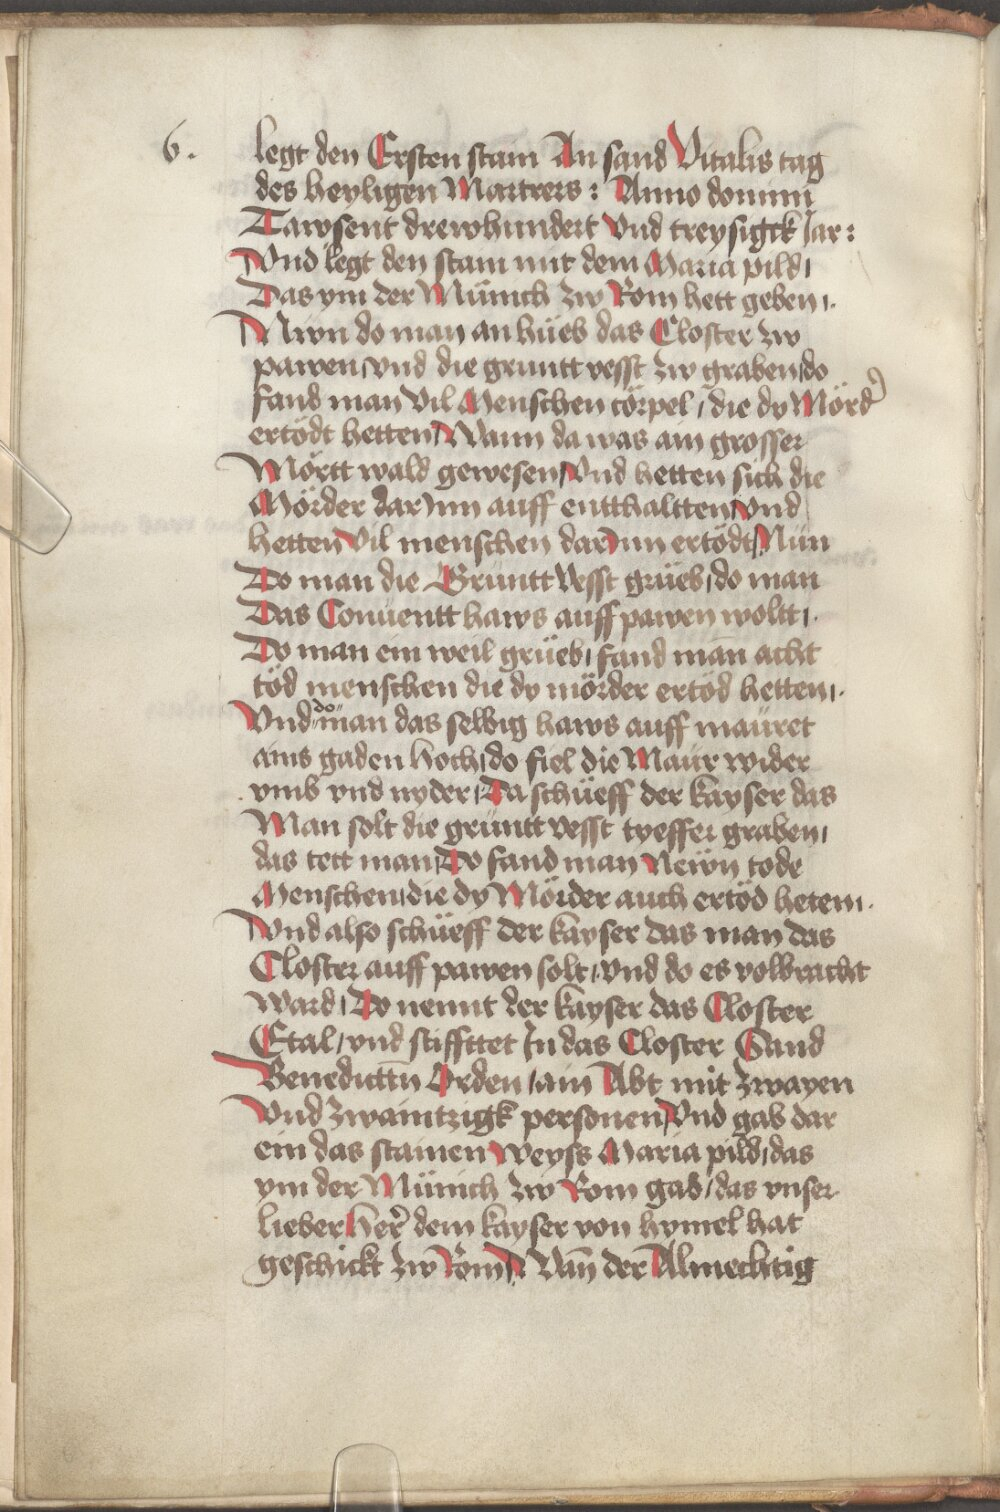 6.
legt den Ersten stain An sand Vitalis tag
des heyligen Martrers : Anno domini
Tawsent drewhundert Vnd treysigck Jar :
Vnd legt den stain mit dem Maria pild /
Das ym der Münich zw Rom hett geben /.
Nwn do man an hüeb das Closter zw
pawen / vnd die gruntt vesst zw graben / do
fand man Vil Menschen cörpel / die dy Mörd᾿
ertödt hetten / Wann da was ain grosser
Mörtt wald gewesen / Vnd hetten sich die
Mörder dar Inn auff entthaltten / vnd
hetten Vil menschen dar Inn ertödt / Nün
Do man die Grüntt Vesst grüeb / do man
Das Conuentt haws auff pawen woltt /.
Do man ein weil grüeb / fand man acht
töd menschen die dy mörder ertöd hetten /.
Vnd do man das selbig haws auff mauret
ains gaden hoch / do fiel die Maur wider
vmb vnd nyder / Da schüeff der kayser das
Man solt die grüntt vesst tyeffer graben /
das tett man / Do fand man Newn tode
Menschen / die dy Mörder auch ertöd heten /.
Vnd also schüeff der kayser das man das
Closter auff pawen solt / vnd do es volbracht
Ward / Do nennt der kayser das Closter
Etal / vnd stiffttet In das Closter Sand
Benedictn̄ Orden / ain Abt mit zwayen
Vnd zwaintzigk personen / Vnd gab dar
ein das stainen weyss Maria pild / das
ym der Münich zw Rom gab / das vnser
lieber her᾿ dem kayser von hymel hat
geschickt zw Rom / Wan̄ der Almechtig